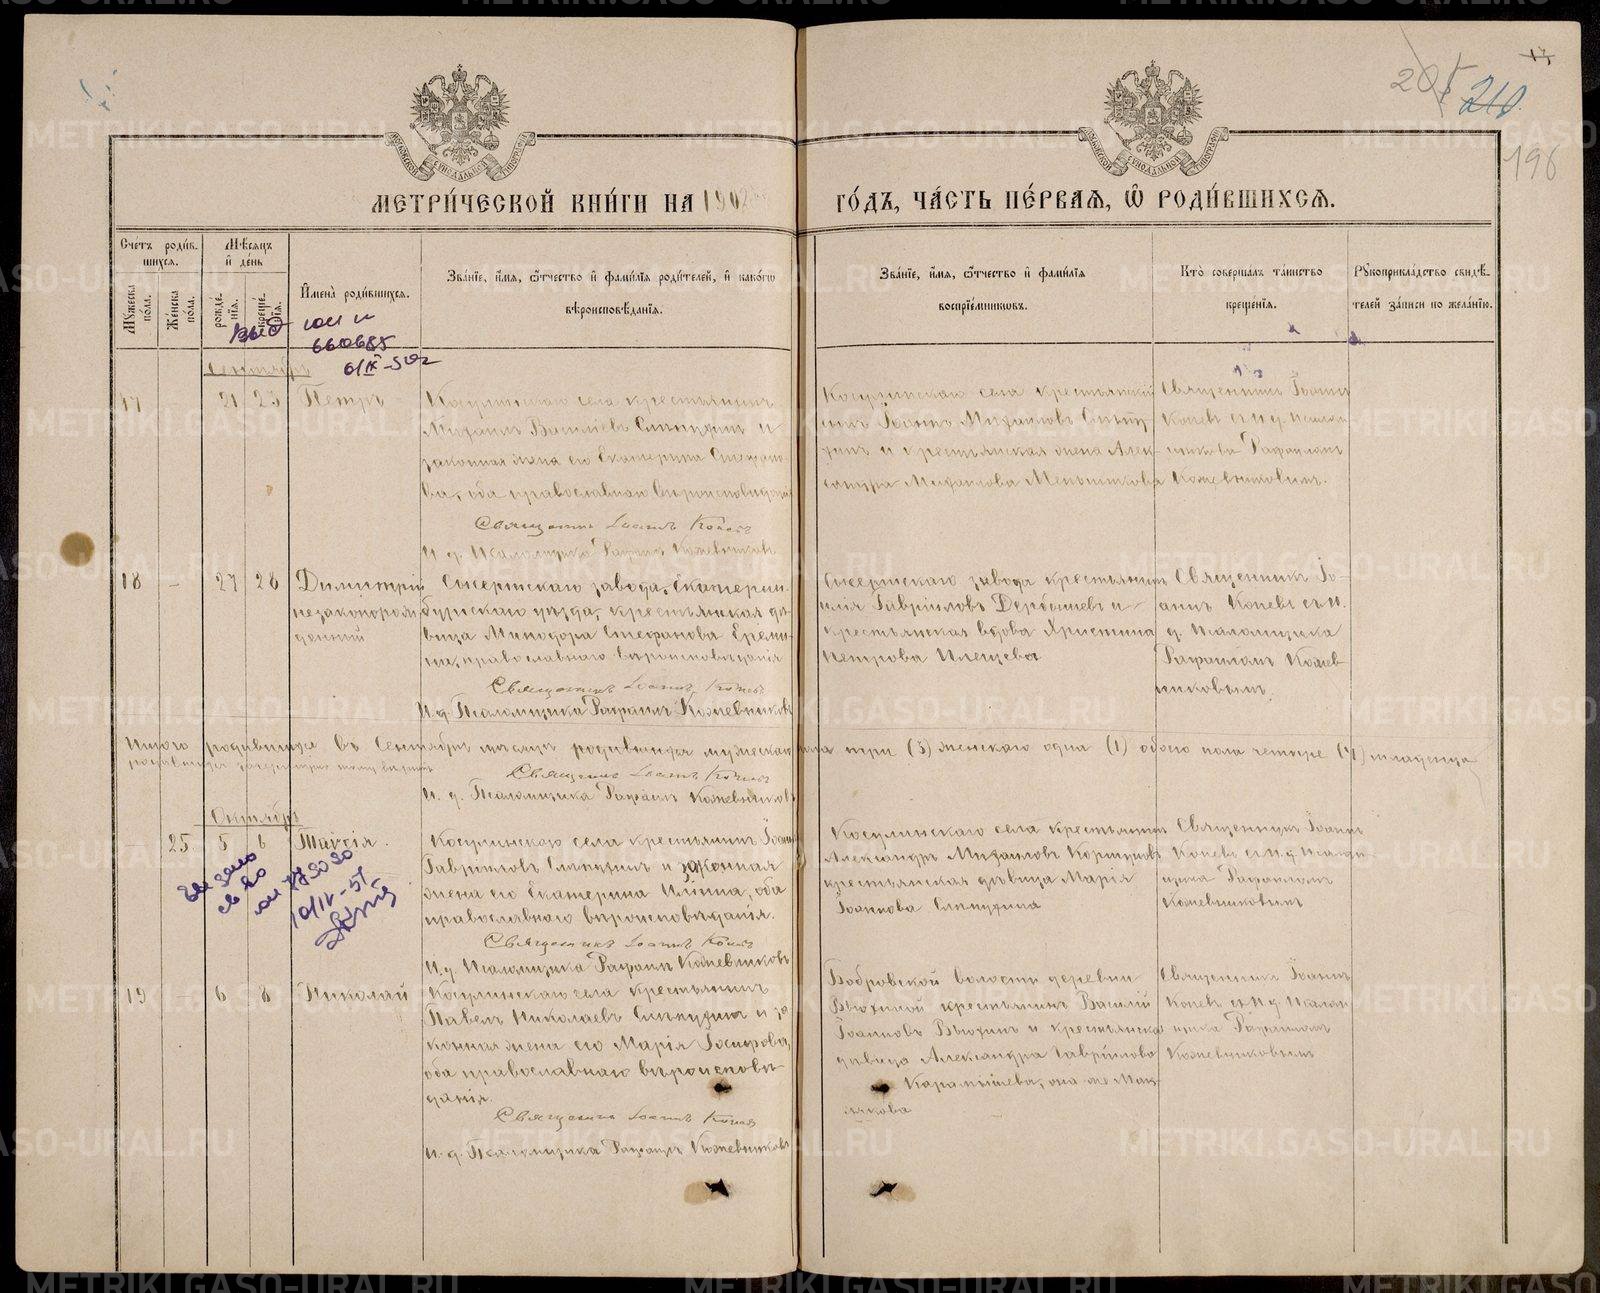 МЕТРИ́ЧЕСКОЙ КНИ́ГИ НА 190
ГО́ДЪ, ЧА́СТЬ ПЕ́РВАѦ, Ѽ РОДИ́ВШИХСѦ.
205 210
196
Сче́тъ роди́в-
шихся.
Мѣ́сяцъ
и҆ де́нь
Му́жеска по́ла.
Же́нска по́ла.
рожде́нїя.
креще́нїя.
И҆мена̀ роди́вшихся.
Зва́нїе, и҆́мя, ѻ҆́тчество и҆ фами́лїя роди́телей, и҆ како́гѡ
вѣроисповѣ́данїя.
Зва́нїе, и҆́мя, ѻ҆́тчество и҆ фами́лїя
воспрїе́мниковъ.
Кто̀ соверша́лъ та́инство
креще́нїя.
Рꙋкоприкла́дство свидѣ́-
телей за́писи по жела́нїю.
660685
Сентябрь
17 - 21 23 Петръ
Косулинскаго села крестьянинъ
Михаилъ Васильевъ Слѣпухинъ и
законная жена его Екатерина Стефано-
ва, оба православнаго вѣроисповѣданія
Священникъ Іоаннъ Коневъ
И. д. Псаломщика Рафаилъ Кожевниковъ
Косулинскаго села крестьянскій
сынъ Іоаннъ Михаиловъ Слѣпу-
хинъ и крестьянская жена Алек-
сандра Михаилова Меньшикова
Священникъ Іоаннъ
Коневъ съ И. д. Псалом-
щика Рафаиломъ
Кожевниковымъ.
18 - 27 28 Димитрій
незаконорож-
денный
Сысертскаго завода, Екатерин-
бургскаго уѣзда, крестьянская дѣ-
вица Минодора Стефанова Ереми-
на, православнаго вѣроисповѣданія
Священникъ Іоаннъ Коневъ
И. д. Псаломщика Рафаилъ Кожевниковъ
Сысертскаго завода крестьянинъ
Илія Гавріиловъ Дербышевъ и
крестьянская вдова Христина
Петрова Плещева
Священникъ Іо-
аннъ Коневъ съ И.
д. Псаломщика
Рафаиломъ Кожев-
никовымъ.
Итого родившихся въ Сентябрѣ мѣсяцѣ родившихся мужескаго пола три (3) женскаго одна (1) обоего пола четыре (4) младенца
Священникъ Іоаннъ Коневъ
И. д. Псаломщика Рафаилъ Кожевниковъ
Октябрь
- 25 5 6 Таисія.
Косулинскаго села крестьянинъ Іоаннъ
Гавріиловъ Слѣпухинъ и законная
жена его Екатерина Иліина, оба
православнаго вѣроисповѣданія.
Священникъ Іоаннъ Коневъ
И. д. Псаломщика Рафаилъ Кожевниковъ
Косулинскаго села крестьянинъ
Александръ Михаиловъ Коршуновъ
крестьянская дѣвица Марія
Іоаннова Слѣпухина
Священникъ Іоаннъ
Коневъ съ И. д. Псалом-
щика Рафаиломъ
Кожевниковымъ
19 - 6 8 Николай
Косулинскаго села крестьянинъ
Павелъ Николаевъ Слѣпухинъ и за-
конная жена его Марія Іосифова,
оба православнаго вѣроисповѣ-
данія.
Священникъ Іоаннъ Коневъ
И. д. Псаломщика Рафаилъ Кожевниковъ
Бобровской волости деревни
Вьюхиной крестьянинъ Василій
Іоанновъ Вьюхинъ и крестьянская
дѣвица Александра Гавріилова
Карамышева, она же
Священникъ Іоаннъ
Коневъ съ И. д. Псалом-
щика Рафаиломъ
Кожевниковымъ
METRIKI.GASO-URAL.RU